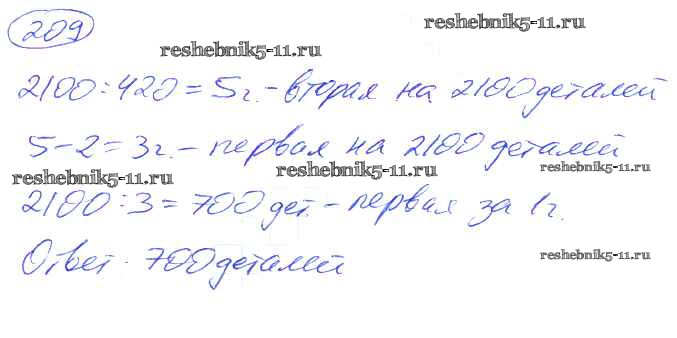 209
reshebnik5-11.ru
reshebnik5-11.ru
2100:420=5г.-вторая на 2100 деталей
5-2=3г.-первая на 2100 деталей
reshebnik5-11.ru
reshebnik5-11.ru
reshebnik5-11.ru
2100:3=700 дет.-первая за 1г.
Ответ. 700 деталей
reshebnik5-11.ru